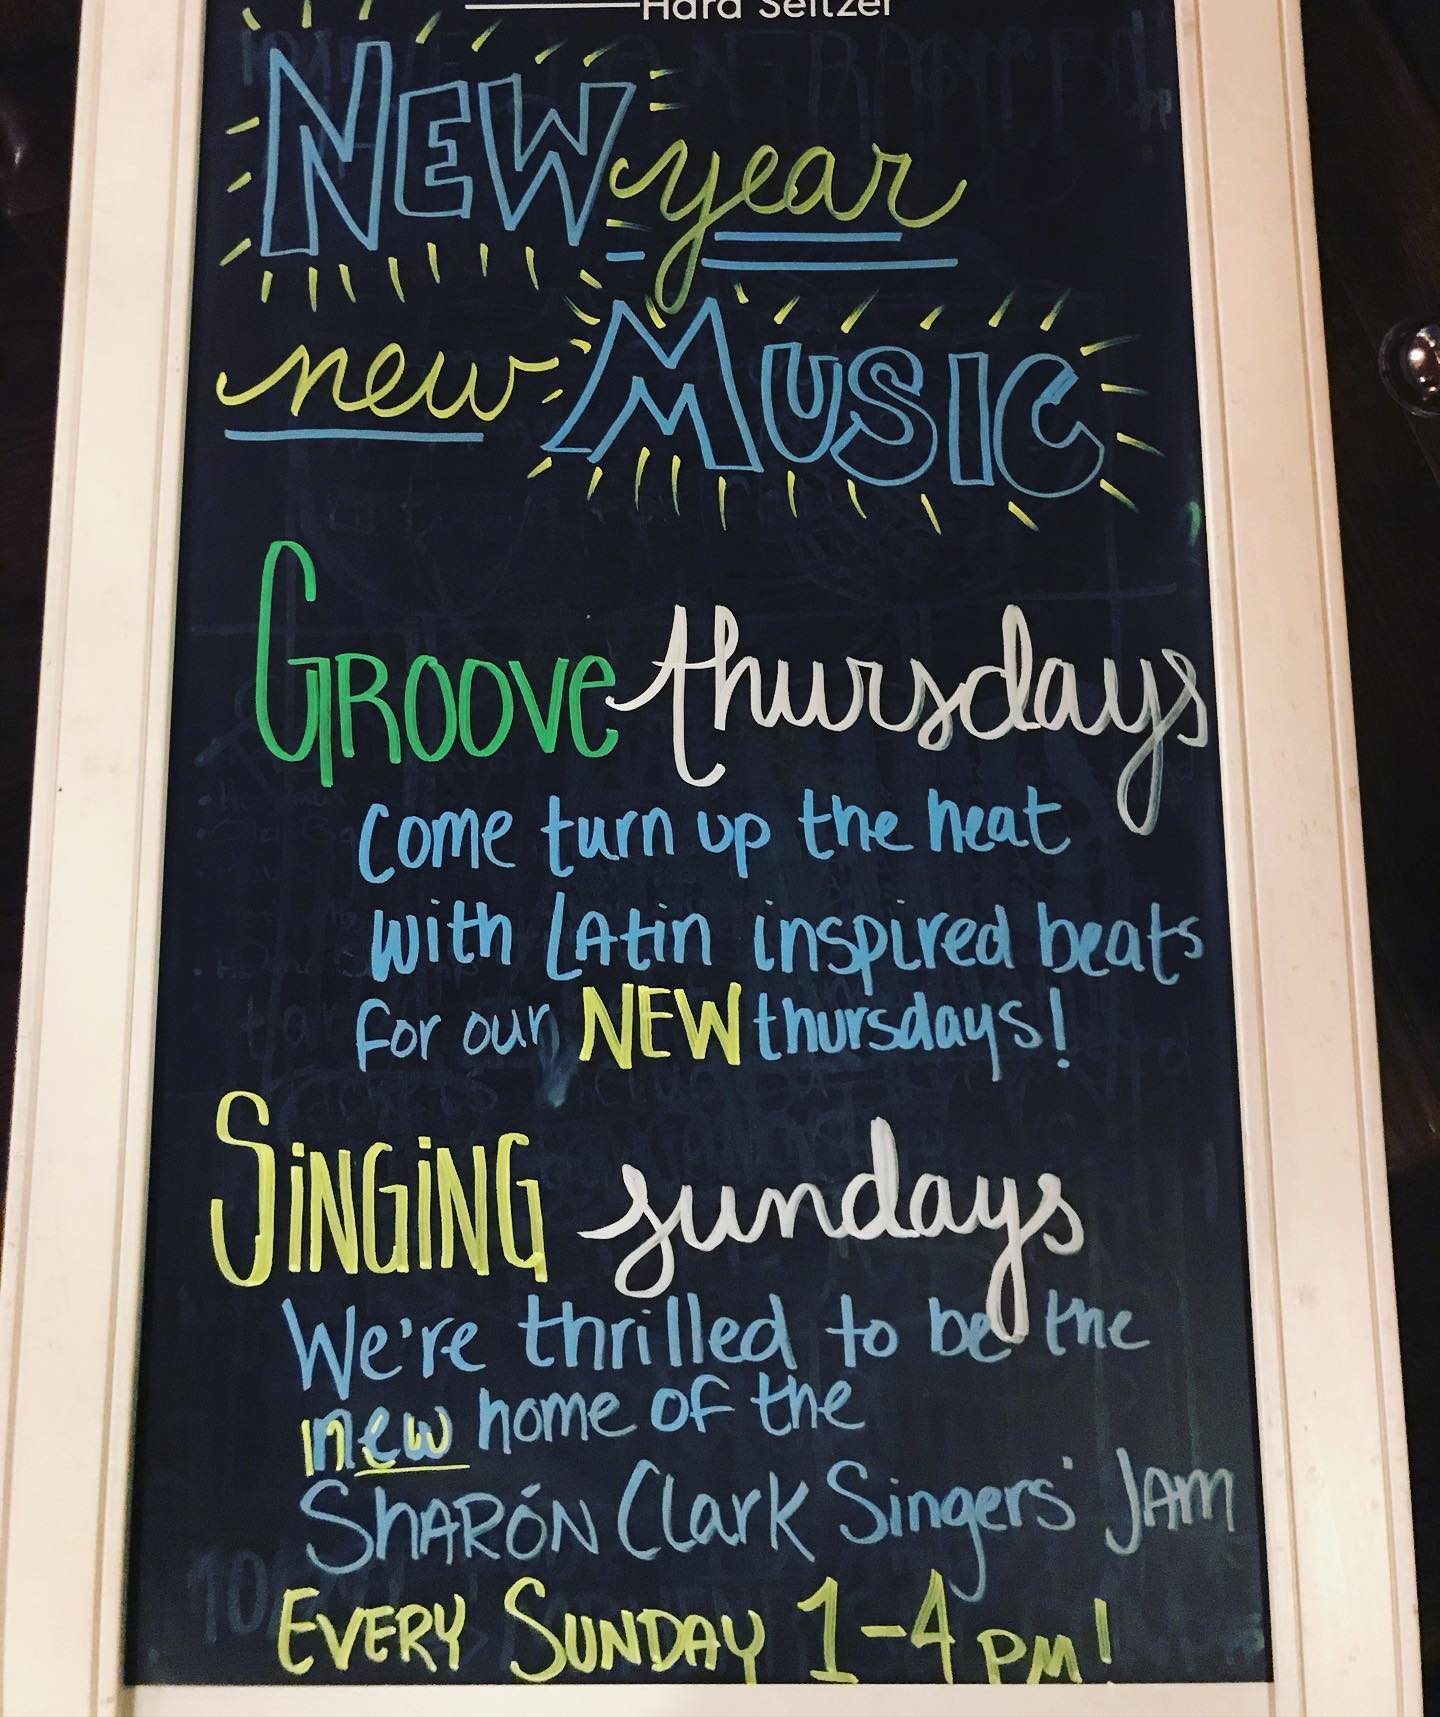 Hard Seltzer
NEW year
new MUSIC
GROOVE thursdays
come turn up the heat
with LAtin inspired beats
for our NEW thursdays!
SiNGiNG sundays
We're thrilled to be the
new home of the
SHARÓN Clark Singers' JAM
EVERY SUNDAY 1-4 PM!